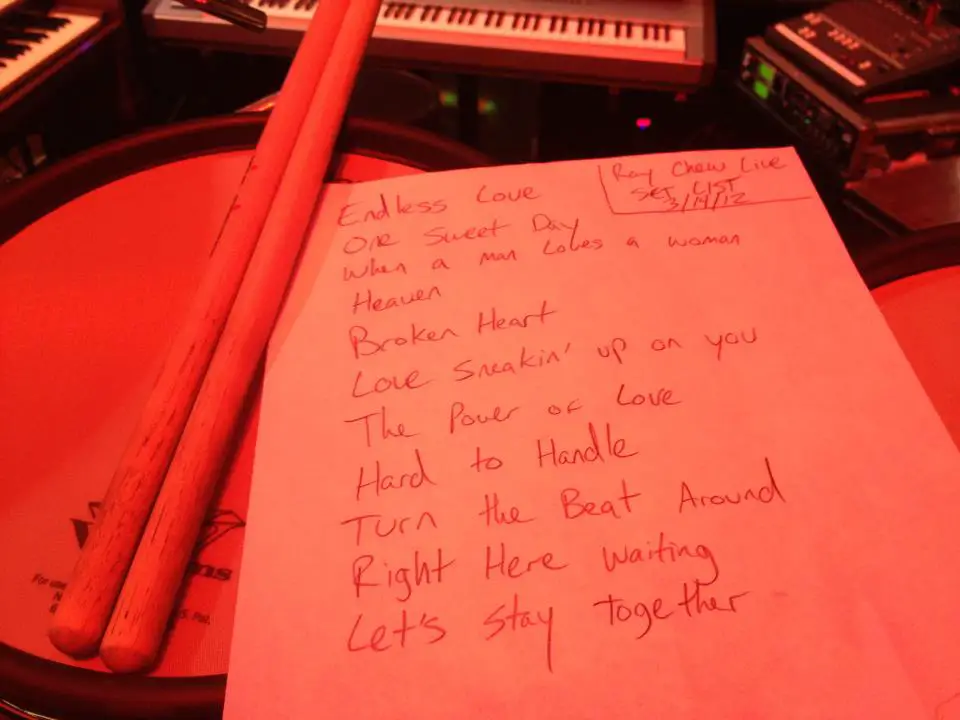 Ray Chew Live
SET LIST
3/19/12
Endless Love
One Sweet Day
When a man Loves a woman
Heaven
Broken Heart
Love Sneakin' up on you
The Power of Love
Hard to Handle
Turn the Beat Around
Right Here Waiting
Let's Stay Together
For use
S. Pat.